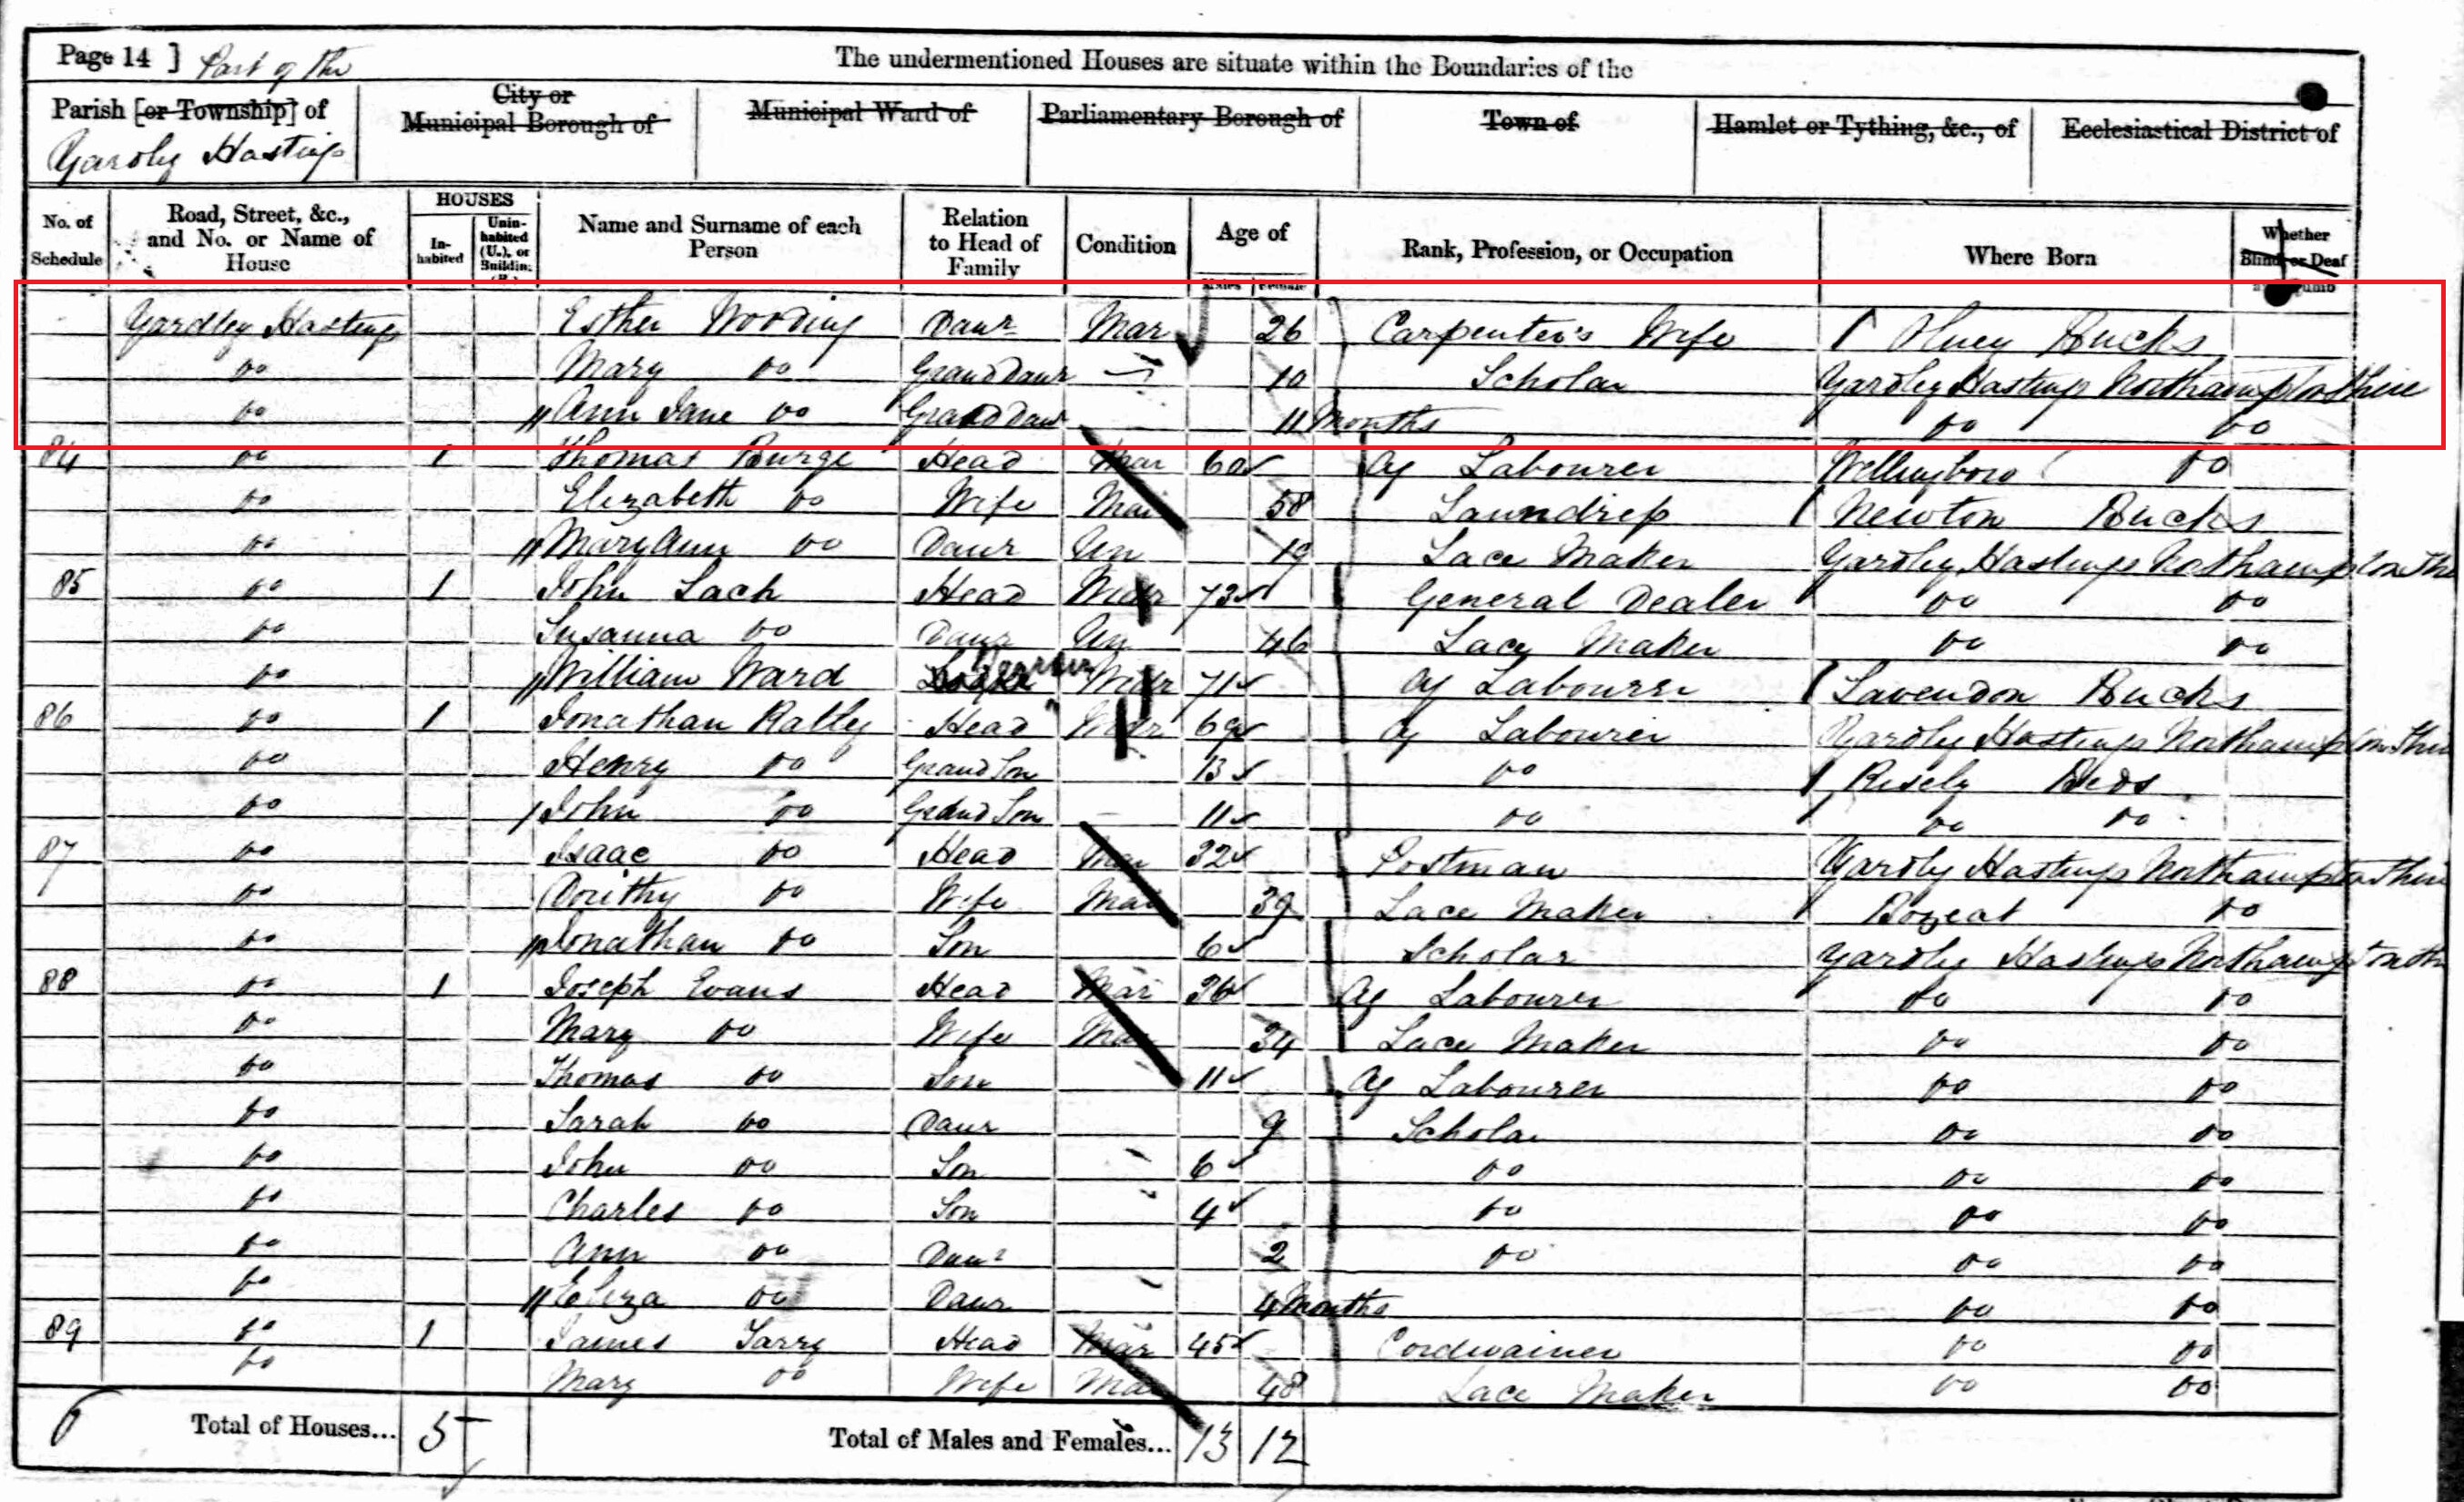 Page 14 ] Part of the The undermentioned Houses are situate within the Boundaries of the
Parish [or Township] of City or Municipal Borough of Municipal Ward of Parliamentary Borough of Town of Hamlet or Tything, &c., of Ecclesiastical District of
Yardly Hastings
No. of Schedule Road, Street, &c., and No. or Name of House HOUSES Inhabited Uninhabited (U.), or Building Name and Surname of each Person Relation to Head of Family Condition Age of Males Females Rank, Profession, or Occupation Where Born Whether Blind or Deaf Dumb
Yardley Hastings Esther Wooding Daur Mar 26 Carpenter's Wife Olney Bucks
Do Mary Do Grand Daur 10 Scholar Yardley Hastings Northamptonshire
Do Ann Jane Do Grand Daur 11 Months Do Do
84 Do 1 Thomas Burge Head Mar 60 Ag Labourer Wellingboro Do
Do Elizabeth Do Wife Mar 58 Laundress Newton Bucks
Do Mary Ann Do Daur Un 19 Lace Maker Yardley Hastings Northamptonshire
85 Do 1 John Lack Head Widr 73 General Dealer Do Do
Do Susanna Do Daur Un 46 Lace Maker Do Do
Do William Ward Widr 71 Ag Labourer Lavendon Bucks
86 Do 1 Jonathan Ralley Head Widr 69 Ag Labourer Yardley Hastings Northamptonshire
Do Henry Do Grand Son 13 Do Risely Beds
Do John Do Grand Son 11 Do Do Do
87 Do Isaac Do Head Mar 32 Postman Yardley Hastings Northamptonshire
Do Dorithy Do Wife Mar 39 Lace Maker Bozeat Do
Do Jonathan Do Son 6 Scholar Yardley Hastings Northamptonsh
88 Do 1 Joseph Evans Head Mar 36 Ag Labourer Do Do
Do Mary Do Wife Mar 34 Lace Maker Do Do
Do Thomas Do Son 11 Ag Labourer Do Do
Do Sarah Do Daur 9 Scholar Do Do
Do John Do Son 6 Do Do Do
Do Charles Do Son 4 Do Do Do
Do Ann Do Daur 2 Do Do Do
Do Eliza Do Daur 4 Months Do Do
89 Do 1 James Tarry Head Mar 45 Cordwainer Do Do
Do Mary Do Wife Mar 48 Lace Maker Do Do
6 Total of Houses... 5 Total of Males and Females... 13 12